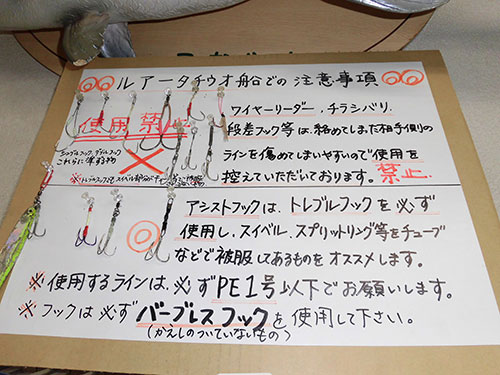 ルアータチウオ船での注意事項
使用禁止
ワイヤーリーダー、チラシバリ、
段差フック等は、絡めてしまった相手側の
ラインを傷めてしまいやすいので使用を
控えていただいております。禁止
シングルフック、ダブルフック
これらに準ずる物
アシストフックは、トレブルフックを必ず
使用し、スイベル、スプリットリング等をチューブ
などで被服してあるものをオススメします。
※使用するラインは、必ずPE1号以下でお願いします。
※フックは必ずバーブレスフックを使用して下さい。
(かえしのついていないもの)